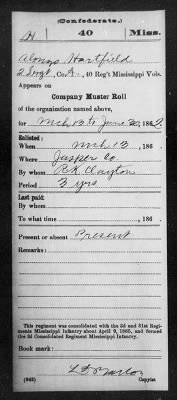 (Confederate.)
H 40 Miss.
Alonzo Hartfield
2 Sergt, Co. A, 40 Reg't Mississippi Vols.
Appears on
Company Muster Roll
of the organization named above,
for Mch 13 to June 30, 1862
Enlisted:
When Mch 13, 186
Where Jasper Co
By whom R K Clayton
Period 3 yrs
Last paid:
By whom
To what time , 186 .
Present or absent Present
Remarks:
This regiment was consolidated with the 3d and 31st Regiments Mississippi Infantry about April 9, 1865, and formed
the 3d Consolidated Regiment Mississippi Infantry.
Book mark:
(642) Copyist.